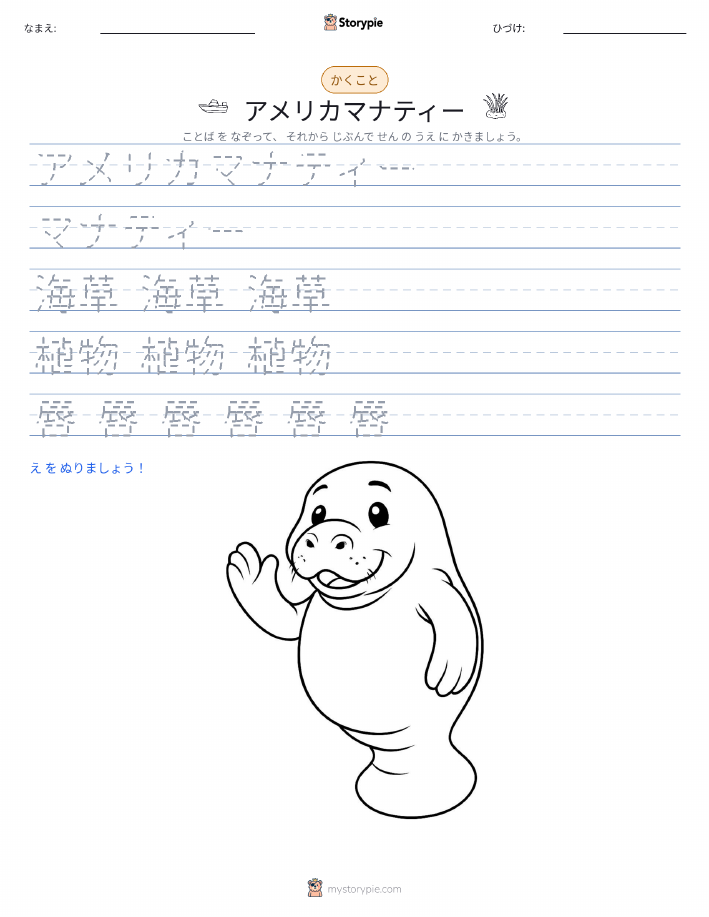 なまえ:
Storypie
ひづけ:
かくこと
アメリカマナティー
ことば を なぞって、 それから じぶんで せん の うえ に かきましょう。
アメリカマナティー
マナティー
海草 海草 海草
植物 植物 植物
唇 唇 唇 唇 唇 唇
え を ぬりましょう！
mystorypie.com